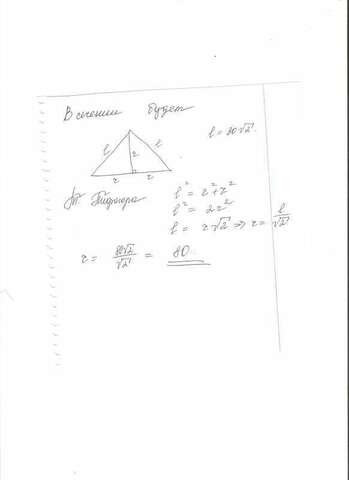 В сечении будет
l = 80√2
l l
r
r r
Т. Пифагора
l² = r² + r²
l² = 2r²
l = r√2 ⇒ r = l/√2
r = 80√2/√2 = 80